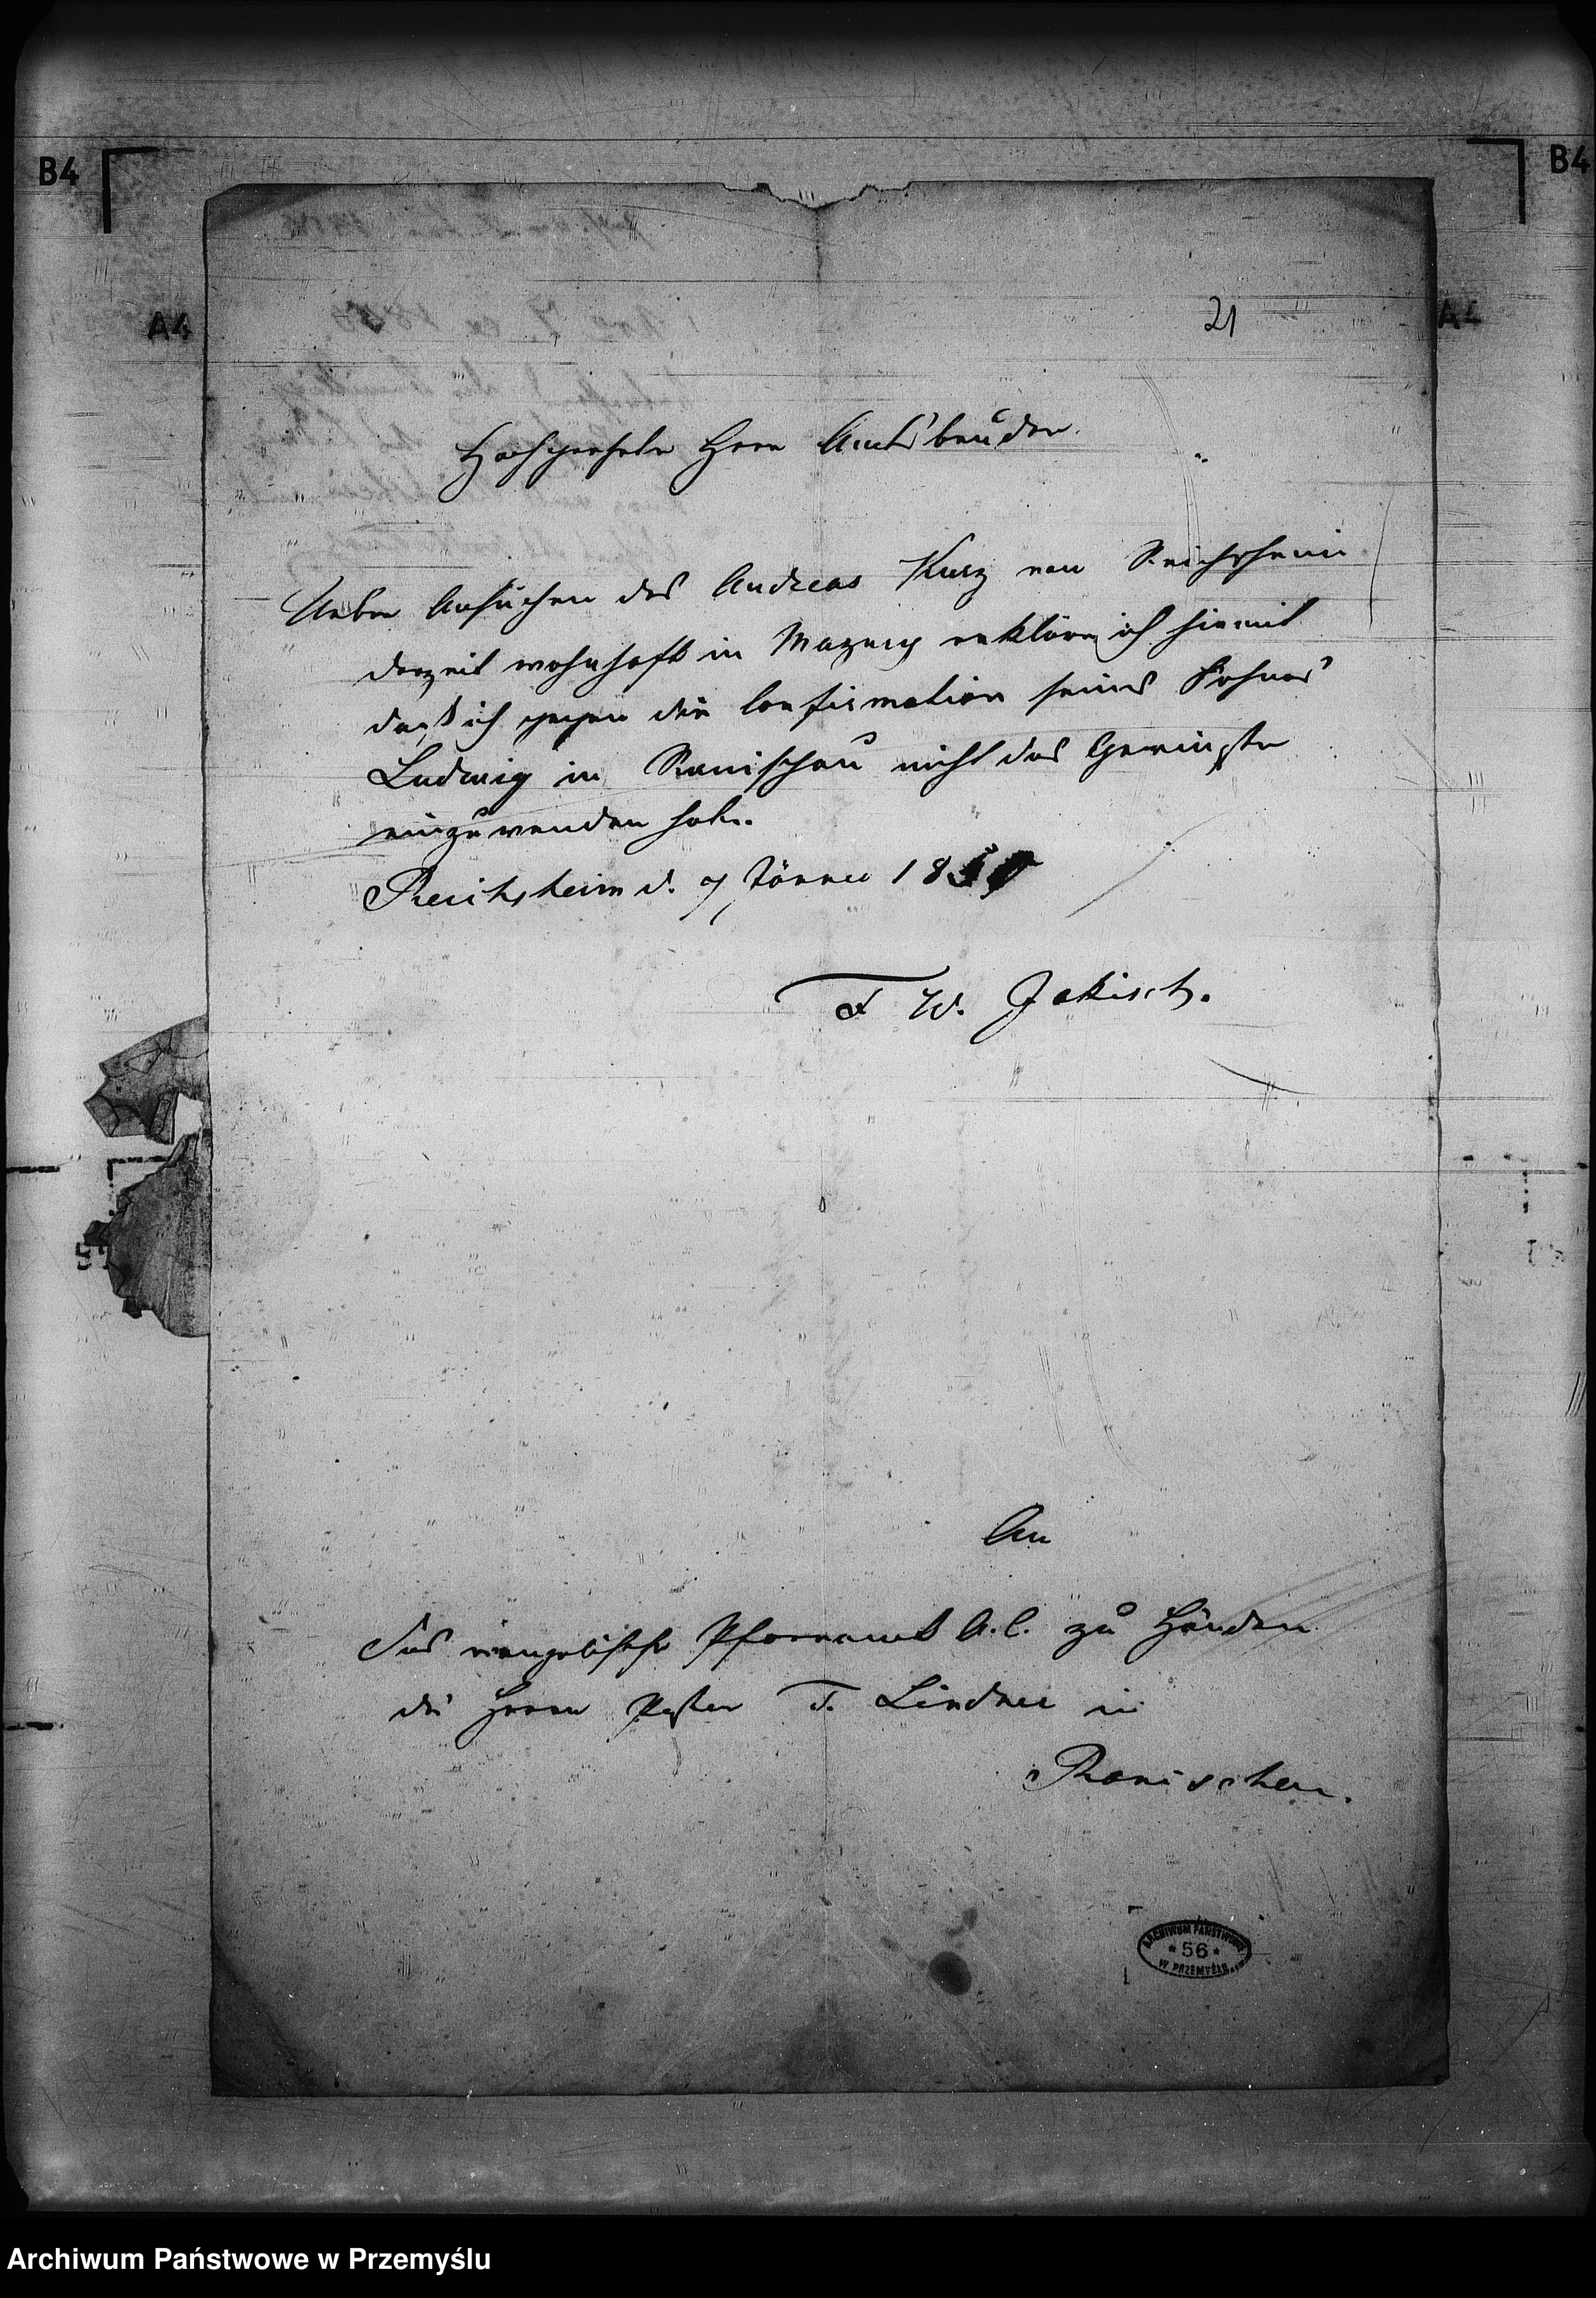 B4
B4
A4
A4
21
Hochgeehrter Herr Amtsbruder.
Ueber Ansuchen des Andreas Kurz von Reichsheim
derzeit wohnhaft in Mazury erkläre ich hiermit
daß ich gegen die Confirmation seines Sohnes
Ludwig in Ranischau nicht das Geringste
einzuwenden habe.
Reichsheim d. 7 Jänner 18
F W. Jakisch.
An
Das evangelische Pfarramt A. C. zu Händen
des Herrn Pastor F. Lindner in
Ranischau.
ARCHIWUM PAŃSTWOWE
* 56 *
W PRZEMYŚLU
Archiwum Państwowe w Przemyślu